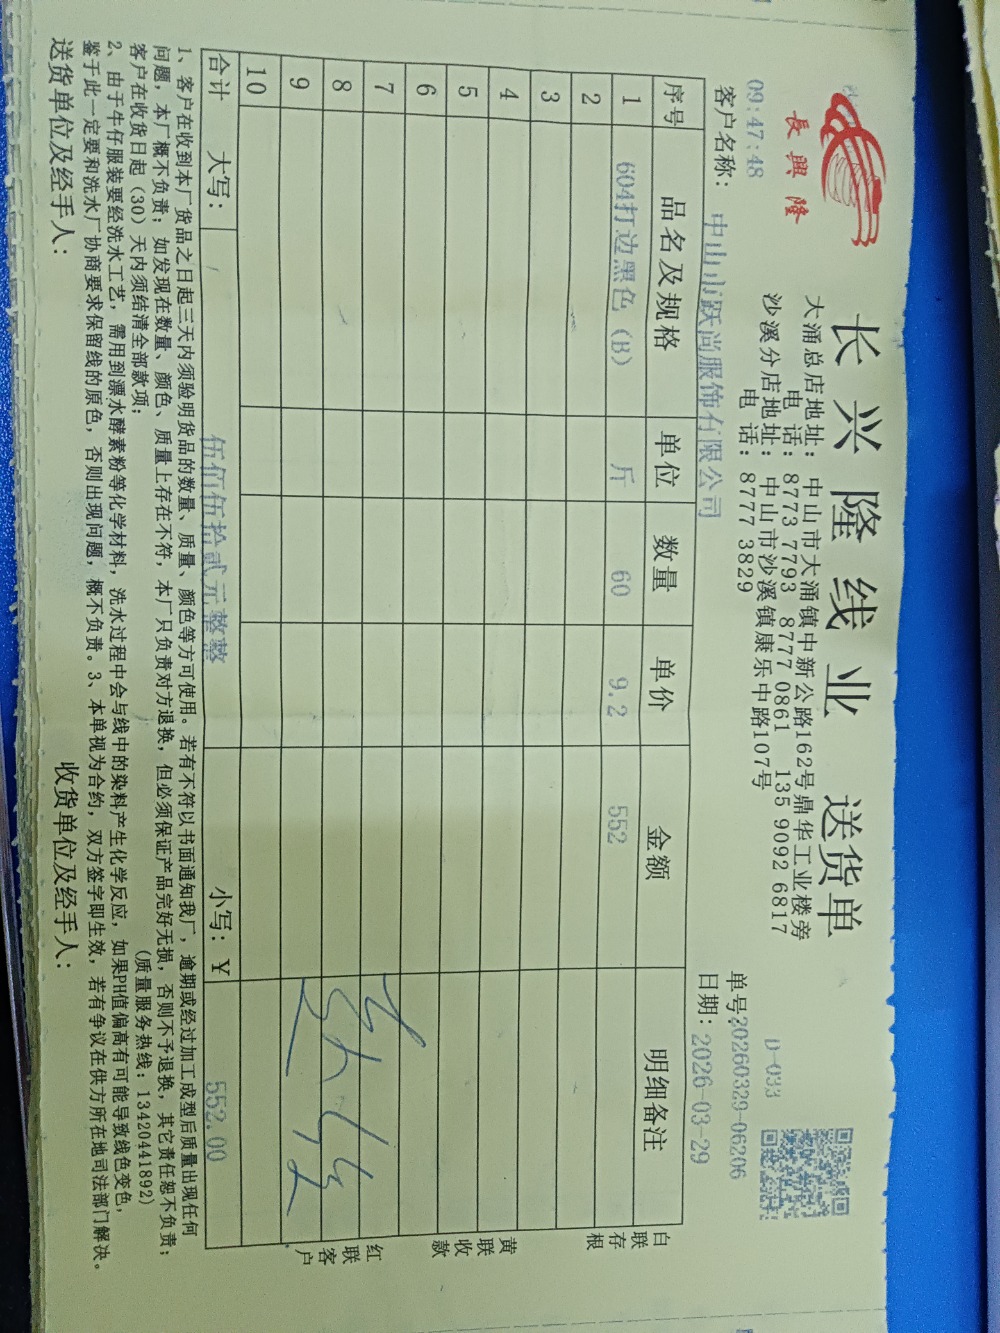 長興隆
长兴隆线业 送货单
大涌总店地址：中山市大涌镇中新公路162号鼎华工业楼旁
电 话：8773 7793 8777 0861 135 9092 6817
沙溪分店地址：中山市沙溪镇康乐中路107号
电 话：8777 3829
D-033
09:47:48
单号:20260329-06206
客户名称：中山市跃尚服饰有限公司
日期：2026-03-29
序号 品名及规格 单位 数量 单价 金额 明细备注
1 604打边黑色（B） 斤 60 9.2 552
2
3
4
5
6
7
8
9
10
合计 大写： 伍佰伍拾贰元整整 小写：￥ 552.00
白联存根
黄联收款
红联客户
1、客户在收到本厂货品之日起三天内须验明货品的数量、质量、颜色等方可使用。若有不符以书面通知我厂，逾期或经过加工成型后质量出现任何
问题，本厂概不负责；如发现在数量、颜色、质量上存在不符，本厂只负责对方退换，但必须保证产品完好无损，否则不予退换，其它责任恕不负责；
客户在收货日起（30）天内须结清全部款项；
(质量服务热线：13420441892)
2、由于牛仔服装要经洗水工艺，需用到漂水酵素粉等化学材料，洗水过程中会与线中的染料产生化学反应，如果PH值偏高有可能导致线色变色，
鉴于此一定要和洗水厂协商要求保留线的原色，否则出现问题，概不负责。3、本单视为合约，双方签字即生效，若有争议在供方所在地司法部门解决。
送货单位及经手人：
收货单位及经手人：